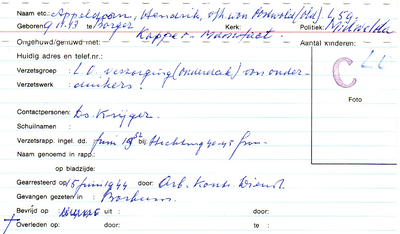 Naam etc. Appeldoorn, Hendrik, afk. von Oostwold (Old.) 459.
Geboren 9 11 '13 te Borger Kerk: Politiek: Midwolda
Kapper - Manufact.
Ongehuwd/gehuwd met: Aantal kinderen:
Huidig adres en telef.nr.:
Verzetsgroep : L.O. verzorging (Onderdak) v. onder-
Verzetswerk : duikers.
LL
C
Foto
Contactpersonen: Ds. Krijger.
Schuilnaam :
Verzetsrapp. ingel. dd. Juni 1952 bij: Stichting 40-45 Gron.
Naam genoemd in rapp.:
op bladzijde:
Gearresteerd op: 15 Juni 1944 door: Arb. Kontr. Dienst.
Gevangen gezeten in : Borkum.
Bevrijd op : uit : door:
Overleden op: door: te :